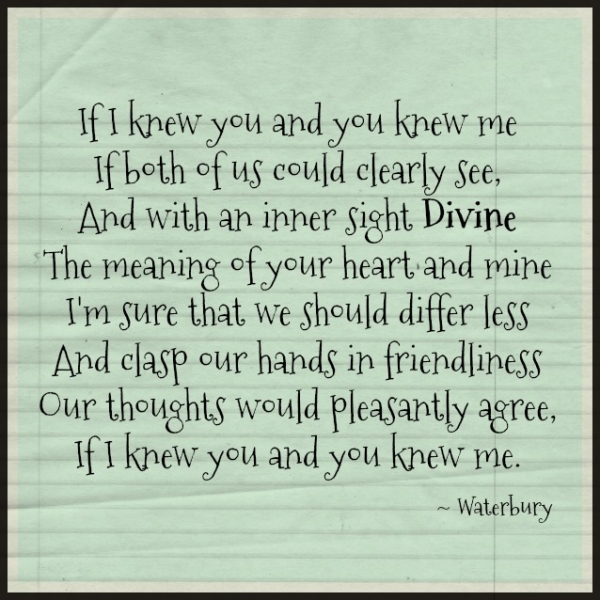 If I knew you and you knew me
If both of us could clearly see,
And with an inner sight Divine
The meaning of your heart and mine
I'm sure that we should differ less
And clasp our hands in friendliness
Our thoughts would pleasantly agree,
If I knew you and you knew me.
~ Waterbury